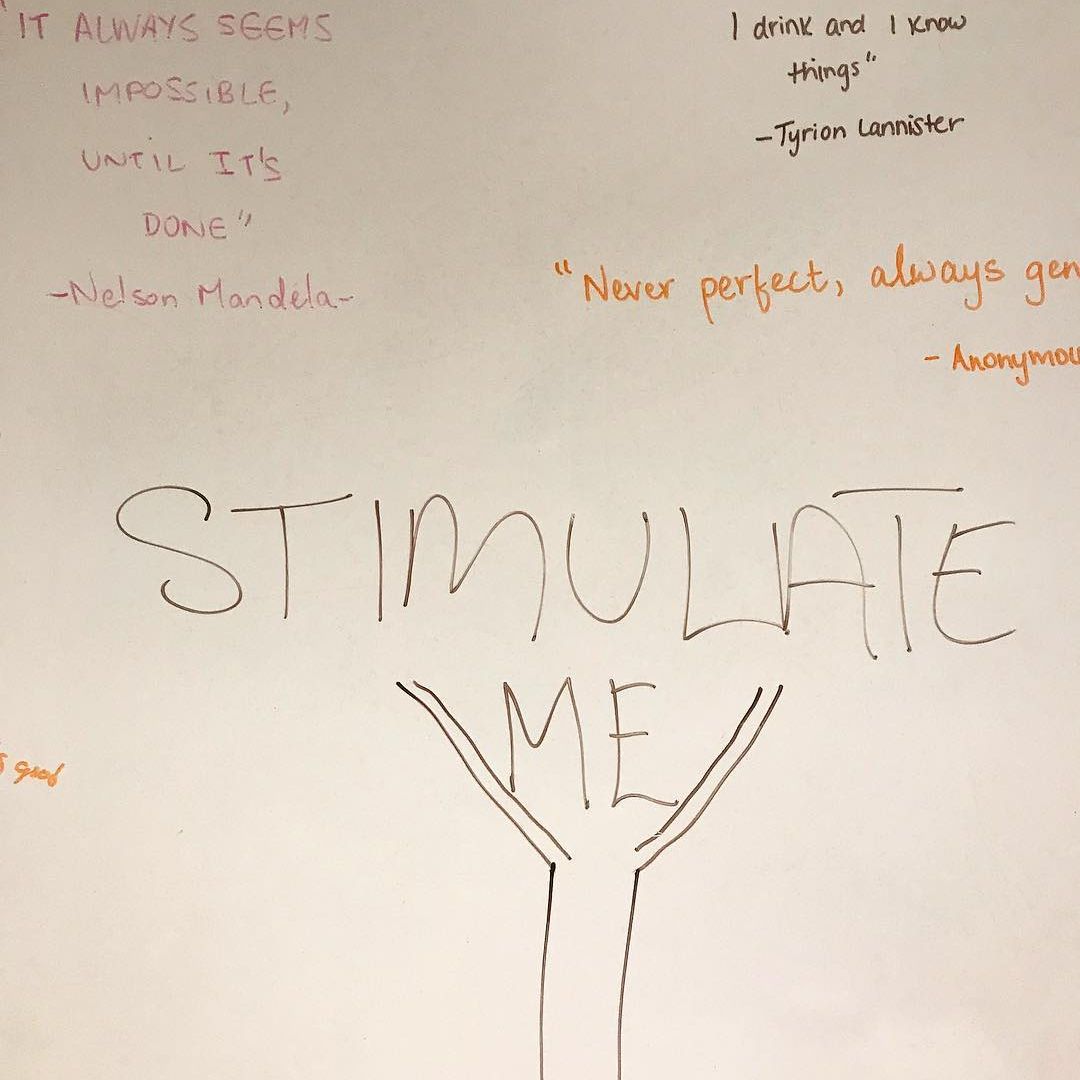 "IT ALWAYS SEEMS
IMPOSSIBLE,
UNTIL IT'S
DONE"
-Nelson Mandela-
I drink and I know
things"
-Tyrion Lannister
"Never perfect, always gen
- Anonymou
STIMULATE
ME